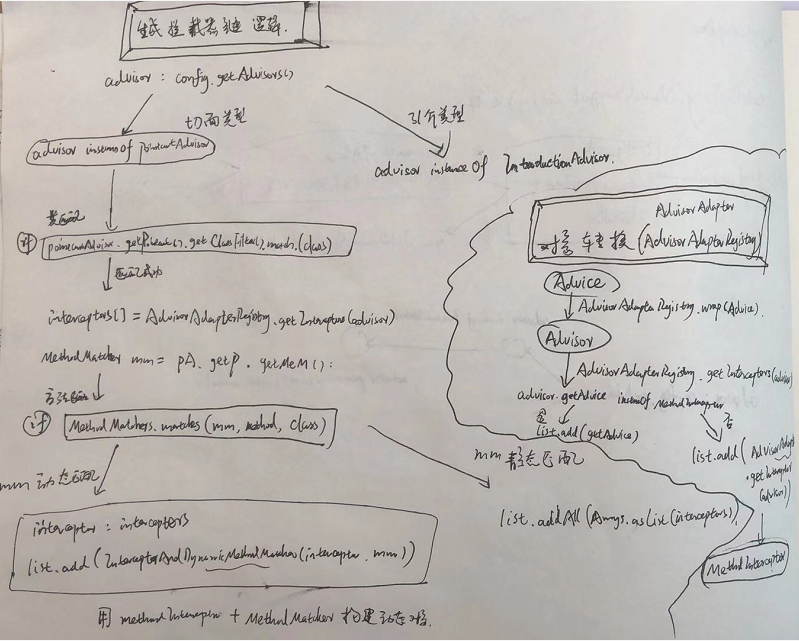 生成拦截器链 逻辑.
advisor : config.getAdvisors()
切面类型
引介类型
advisor instanceof pointcutAdvisor
advisor instance Of IntroductionAdvisor.
类匹配
if pointcutAdvisor.getPointcut().getClassFilter().match.(class)
匹配成功
interceptors[] = AdvisorAdapterRegistry.getInterceptors(advisor)
MethodMatcher mm = pA. getP. getMeM();
方法匹配
if MethodMatchers.matches(mm, method, class)
mm 动态匹配
mm 静态匹配
interceptor : interceptors
list.add(InterceptorAndDynamicMethodMatcher(interceptor, mm))
用 methodInterceptor + MethodMatcher 构建动态对象.
list.addAll(Arrays.asList(interceptors))
AdvisorAdapter
(AdvisorAdapterRegistry)
Advice
AdvisorAdapterRegistry.wrap(Advice).
Advisor
AdvisorAdapterRegistry.getInterceptors(advisor)
advisor.getAdvice instanceof MethodInterceptor
是
否
list.add(getAdvice)
list.add(AdvisorAdapt
.getInterceptor
(advisor))
MethodInterceptor